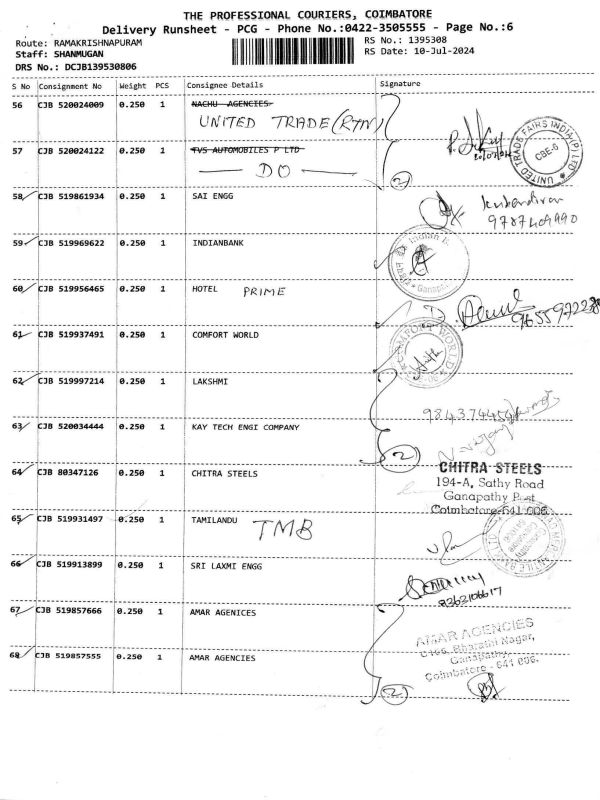 THE PROFESSIONAL COURIERS, COIMBATORE
Delivery Runsheet - PCG - Phone No.:0422-3505555 - Page No.:6
Route: RAMAKRISHNAPURAM RS No.: 1395308
Staff: SHANMUGAN RS Date: 10-Jul-2024
DRS No.: DCJB139530806
S No Consignment No Weight PCS Consignee Details Signature
56 CJB 520024009 0.250 1 NACHU AGENCIES
UNITED TRADE (RTN)
57 CJB 520024122 0.250 1 TVS AUTOMOBILES P LTD
DO
2
UNITED TRADE FAIRS INDIA (P) LTD
CBE-6
58 CJB 519861934 0.250 1 SAI ENGG
9787409990
59 CJB 519969622 0.250 1 INDIANBANK
Indian
Ganapa
60 CJB 519956465 0.250 1 HOTEL PRIME
61 CJB 519937491 0.250 1 COMFORT WORLD
COMFORT WORLD
62 CJB 519997214 0.250 1 LAKSHMI
63 CJB 520034444 0.250 1 KAY TECH ENGI COMPANY
2
64 CJB 80347126 0.250 1 CHITRA STEELS
CHITRA STEELS
194-A, Sathy Road
Ganapathy Post
Coimbatore-641 006.
65 CJB 519931497 0.250 1 TAMILANDU TMB
66 CJB 519913899 0.250 1 SRI LAXMI ENGG
67 CJB 519857666 0.250 1 AMAR AGENICES
68 CJB 519857555 0.250 1 AMAR AGENCIES
2
AMAR AGENCIES
Bharathi Nagar,
Ganapathy,
Coimbatore - 641 006.